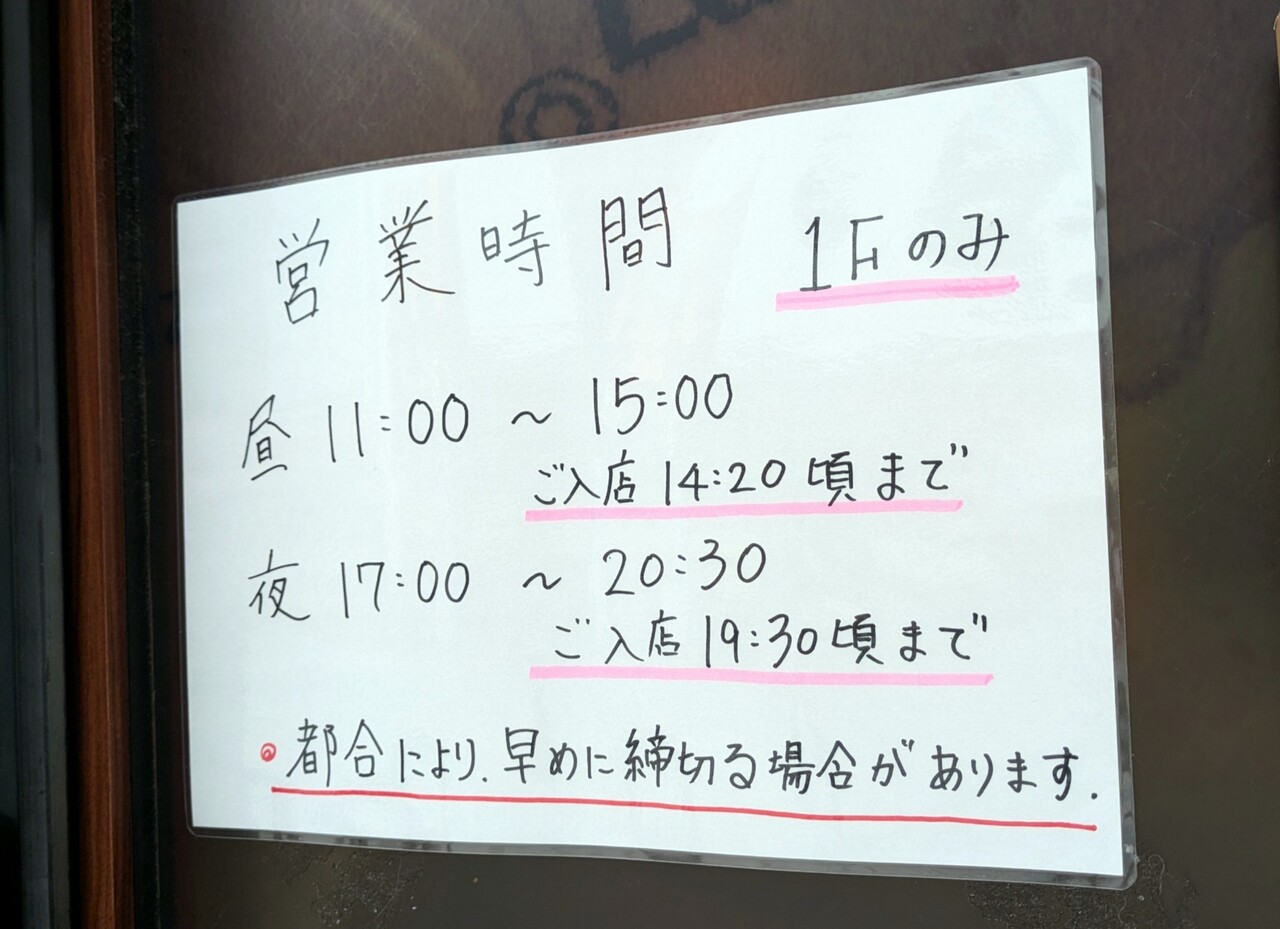 営業時間 1Fのみ
昼 11:00 ~ 15:00
ご入店 14:20 頃まで
夜 17:00 ~ 20:30
ご入店 19:30 頃まで
◎都合により、早めに締切る場合があります.